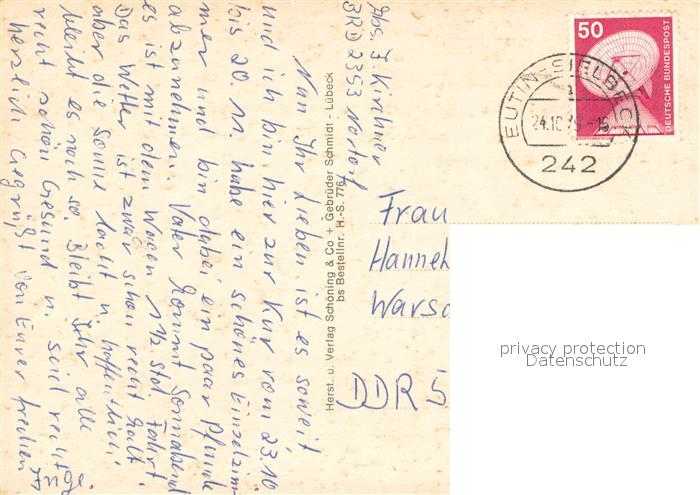 Abs. I. Kirchner
BRD 2353 Nortorf
Nun Ihr Lieben ist es soweit
und ich bin hier zur Kur vom 23.10.
bis 20.11. habe ein schönes Einzelzim-
mer und bin dabei ein paar Pfunde
abzunehmen. Vater kommt Sonnabend
es ist mit dem Wagen 1 1/2 Std. Fahrt.
Das Wetter ist zwar schon recht kalt
aber die Sonne lacht u. hoffentlich
bleibt es noch so. Bleibt Ihr alle
recht schön Gesund u. seid recht
herzlich gegrüßt von Eurer
Herst. u. Verlag Schöning & Co + Gebrüder Schmidt - Lübeck
bs Bestellnr. H.-S. 776
50
DEUTSCHE BUNDESPOST
EUTIN-SIELBECK
24.10.
-16
242
Frau
Hanneh
Warsc
DDR
privacy protection
Datenschutz